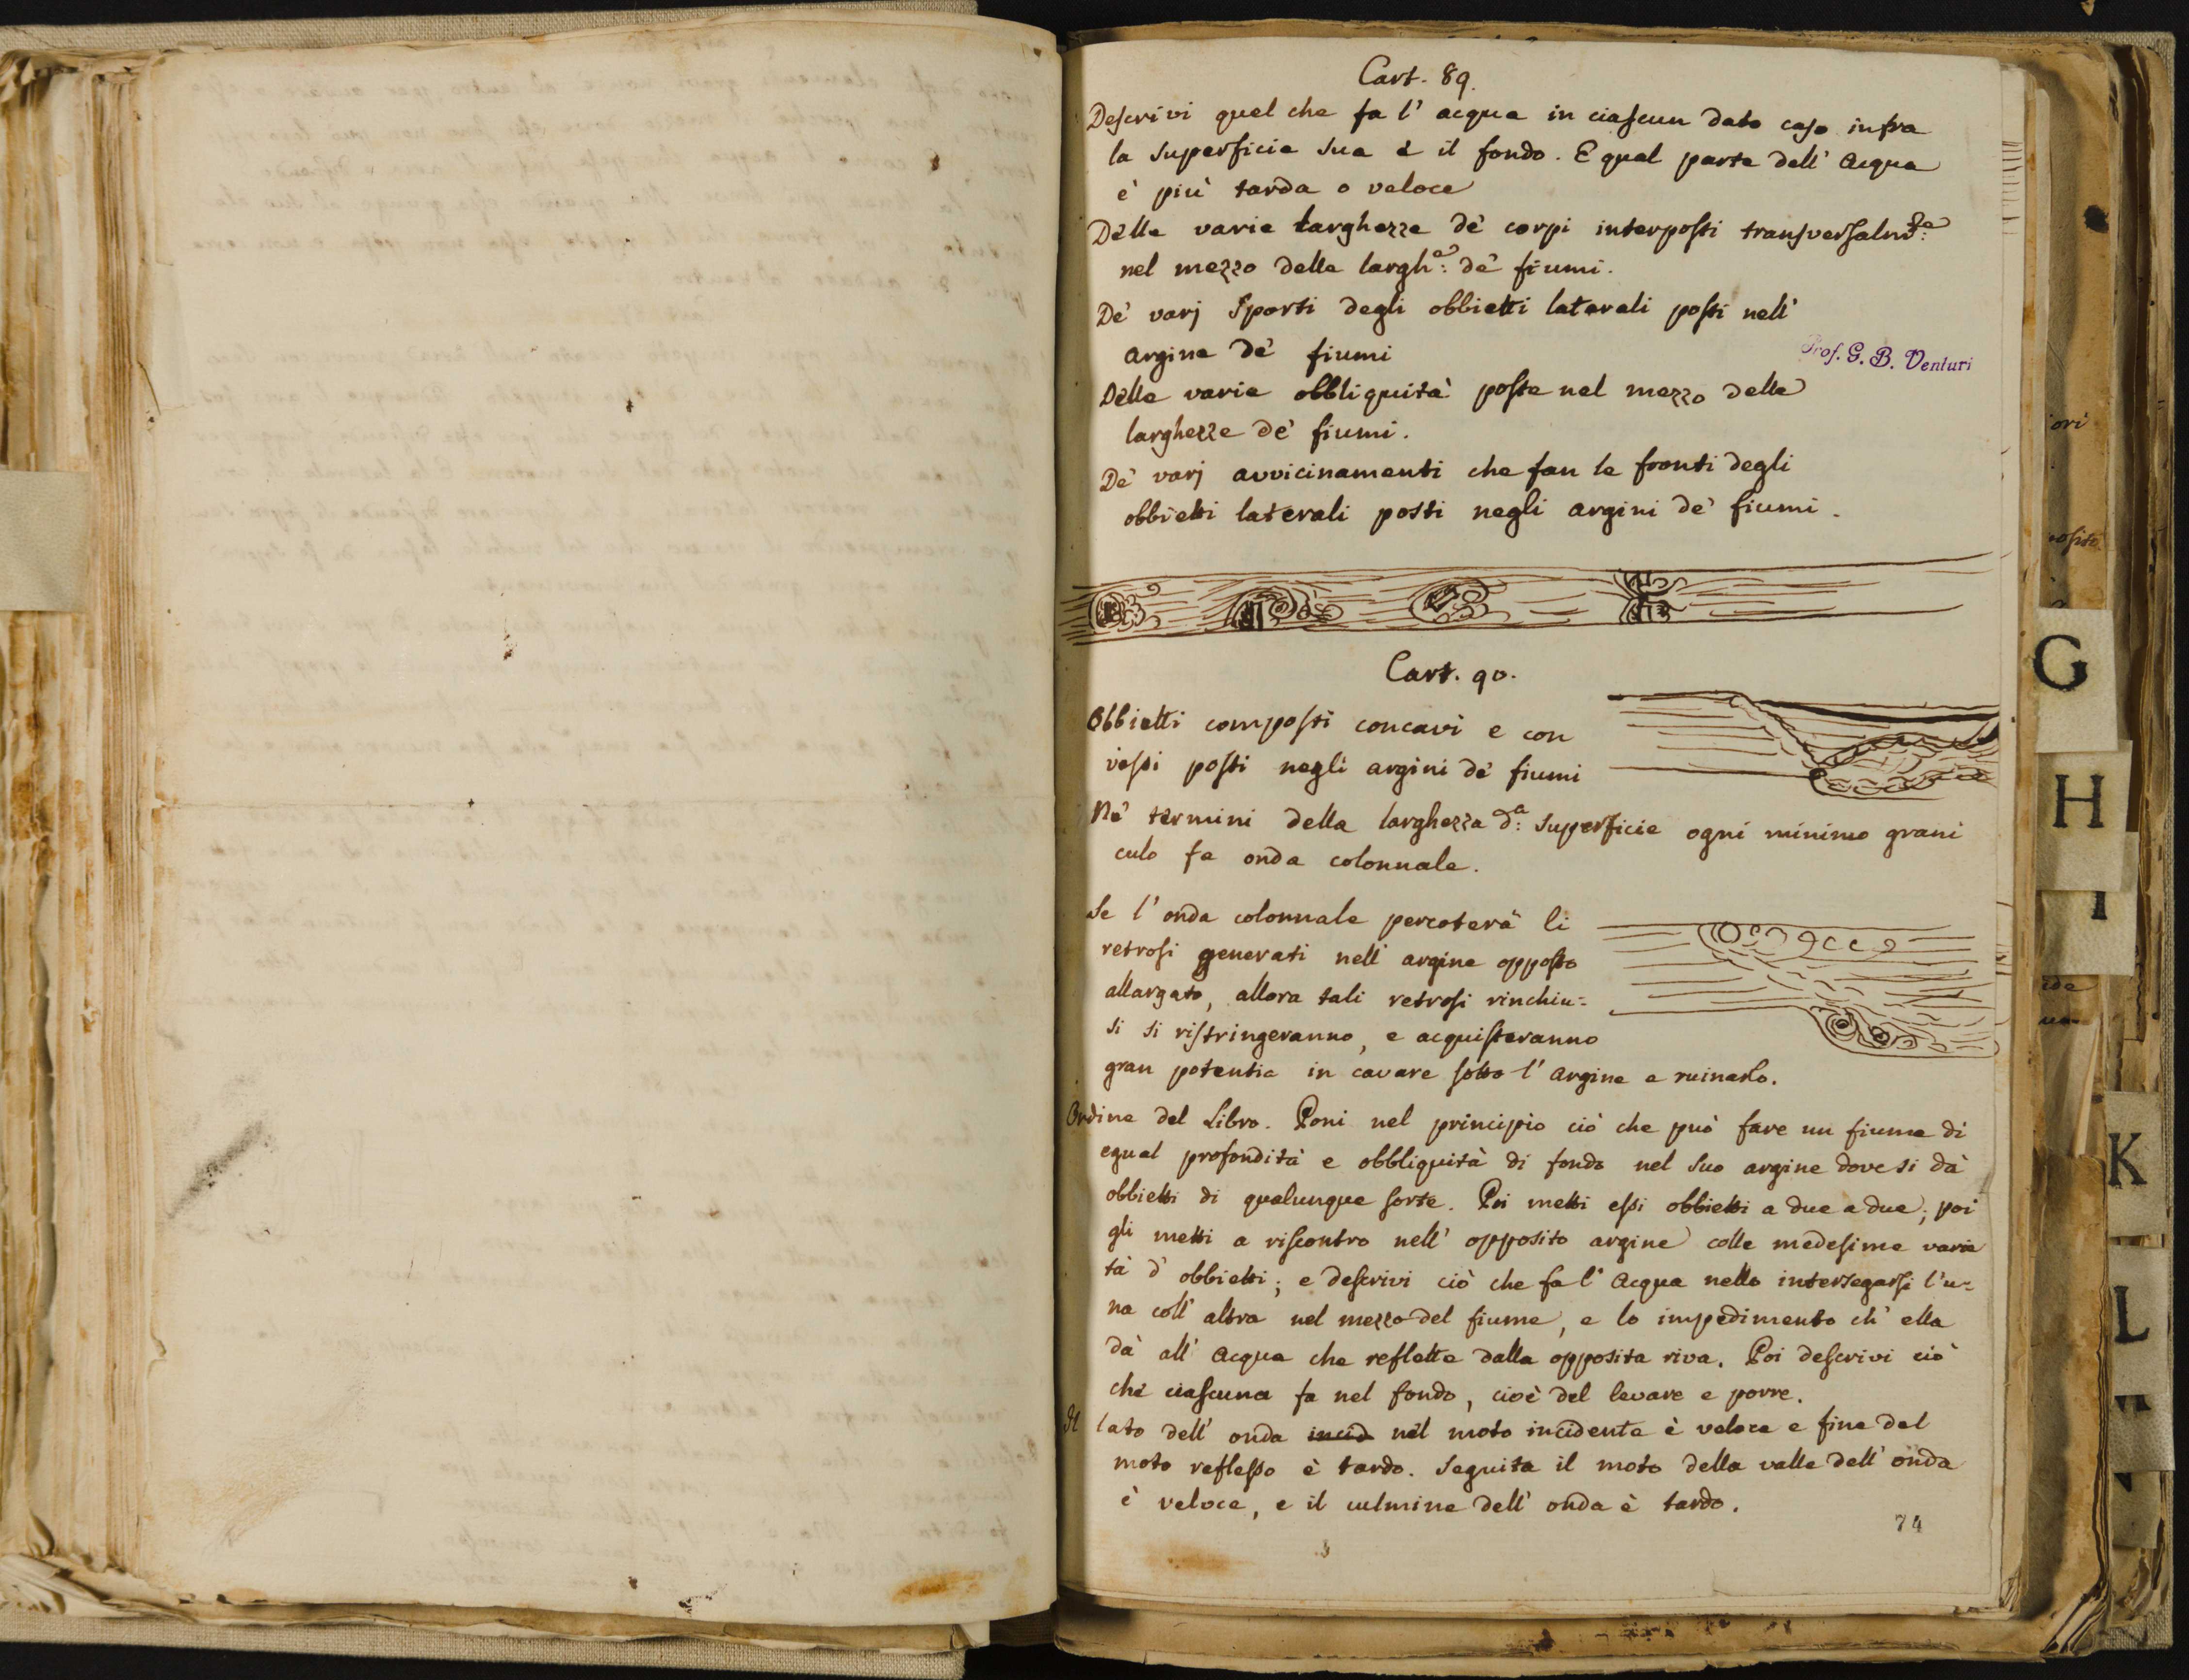 Cart. 89.
Descrivi quel che fa l' acqua in ciascun dato caso infra
la superficie sua e il fondo. E qual parte dell' Acqua
è più tarda o veloce
Delle varie larghezze de' corpi interposti transversalmte:
nel mezzo delle larghe: de' fiumi.
De' varj Sporti degli obbietti laterali posti nell'
argine de' fiumi
Prof. G. B. Venturi
Delle varie obbliquità poste nel mezzo delle
larghezze de' fiumi.
De' varj avvicinamenti che fan le fronti degli
obbietti laterali posti negli argini de' fiumi.
Cart. 90.
Obbietti composti concavi e con
vessi posti negli argini de' fiumi
Ne' termini della larghezza da: superficie ogni minimo grani
culo fa onda colonnale.
Se l' onda colonnale percoterà li
retrosi generati nell' argine opposto
allargato, allora tali retrosi rinchiu=
si si ristringeranno, e acquisteranno
gran potentia in cavare sotto l' argine e ruinarlo.
Ordine del Libro. Poni nel principio ciò che può fare un fiume di
egual profondità e obbliquità di fondo nel suo argine dove si dà
obbietti di qualunque sorte. Poi metti essi obbietti a due a due; poi
gli metti a riscontro nell' opposito argine colle medesime varie
tà d' obbietti; e descrivi ciò che fa l' Acqua nello intersegarsi l'u=
na coll' altra nel mezzo del fiume, e lo impedimento ch' ella
dà all' Acqua che reflette dalla opposita riva. Poi descrivi ciò
che ciascuna fa nel fondo, cioè del levare e porre.
Il lato dell' onda incid nel moto incidente è veloce e fine del
moto reflesso è tardo. Seguita il moto della valle dell' onda
è veloce, e il culmine dell' onda è tardo.
74
ori
osito
G
H
I
ide
K
L